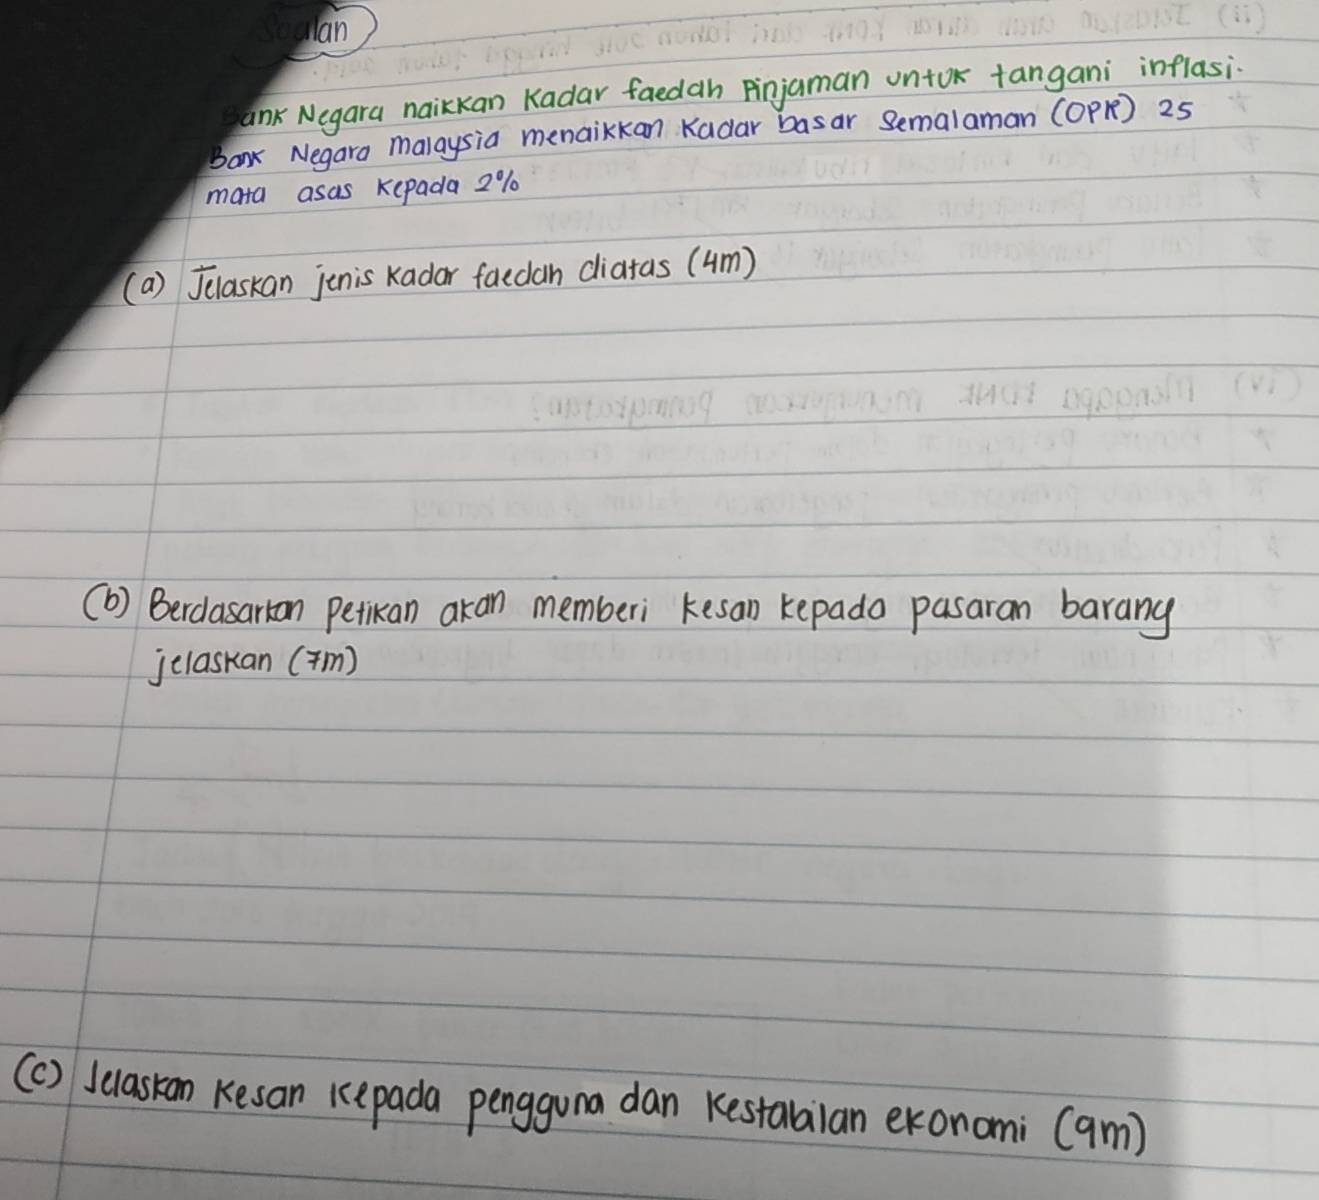 Soalan
Bank Negara naikkan Kadar faedah Pinjaman untuk tangani inflasi.
Bank Negara malaysia menaikkan Kadar basar Semalaman (OPR) 25
mata asas Kepada 2%
(a) Jelaskan jenis kadar faedah diatas (4m)
(b) Berdasarkan petikan akan memberi kesan kepada pasaran barang
jelaskan (7m)
(c) Jelaskan Kesan kepada pengguna dan kestabilan ekonomi (9m)